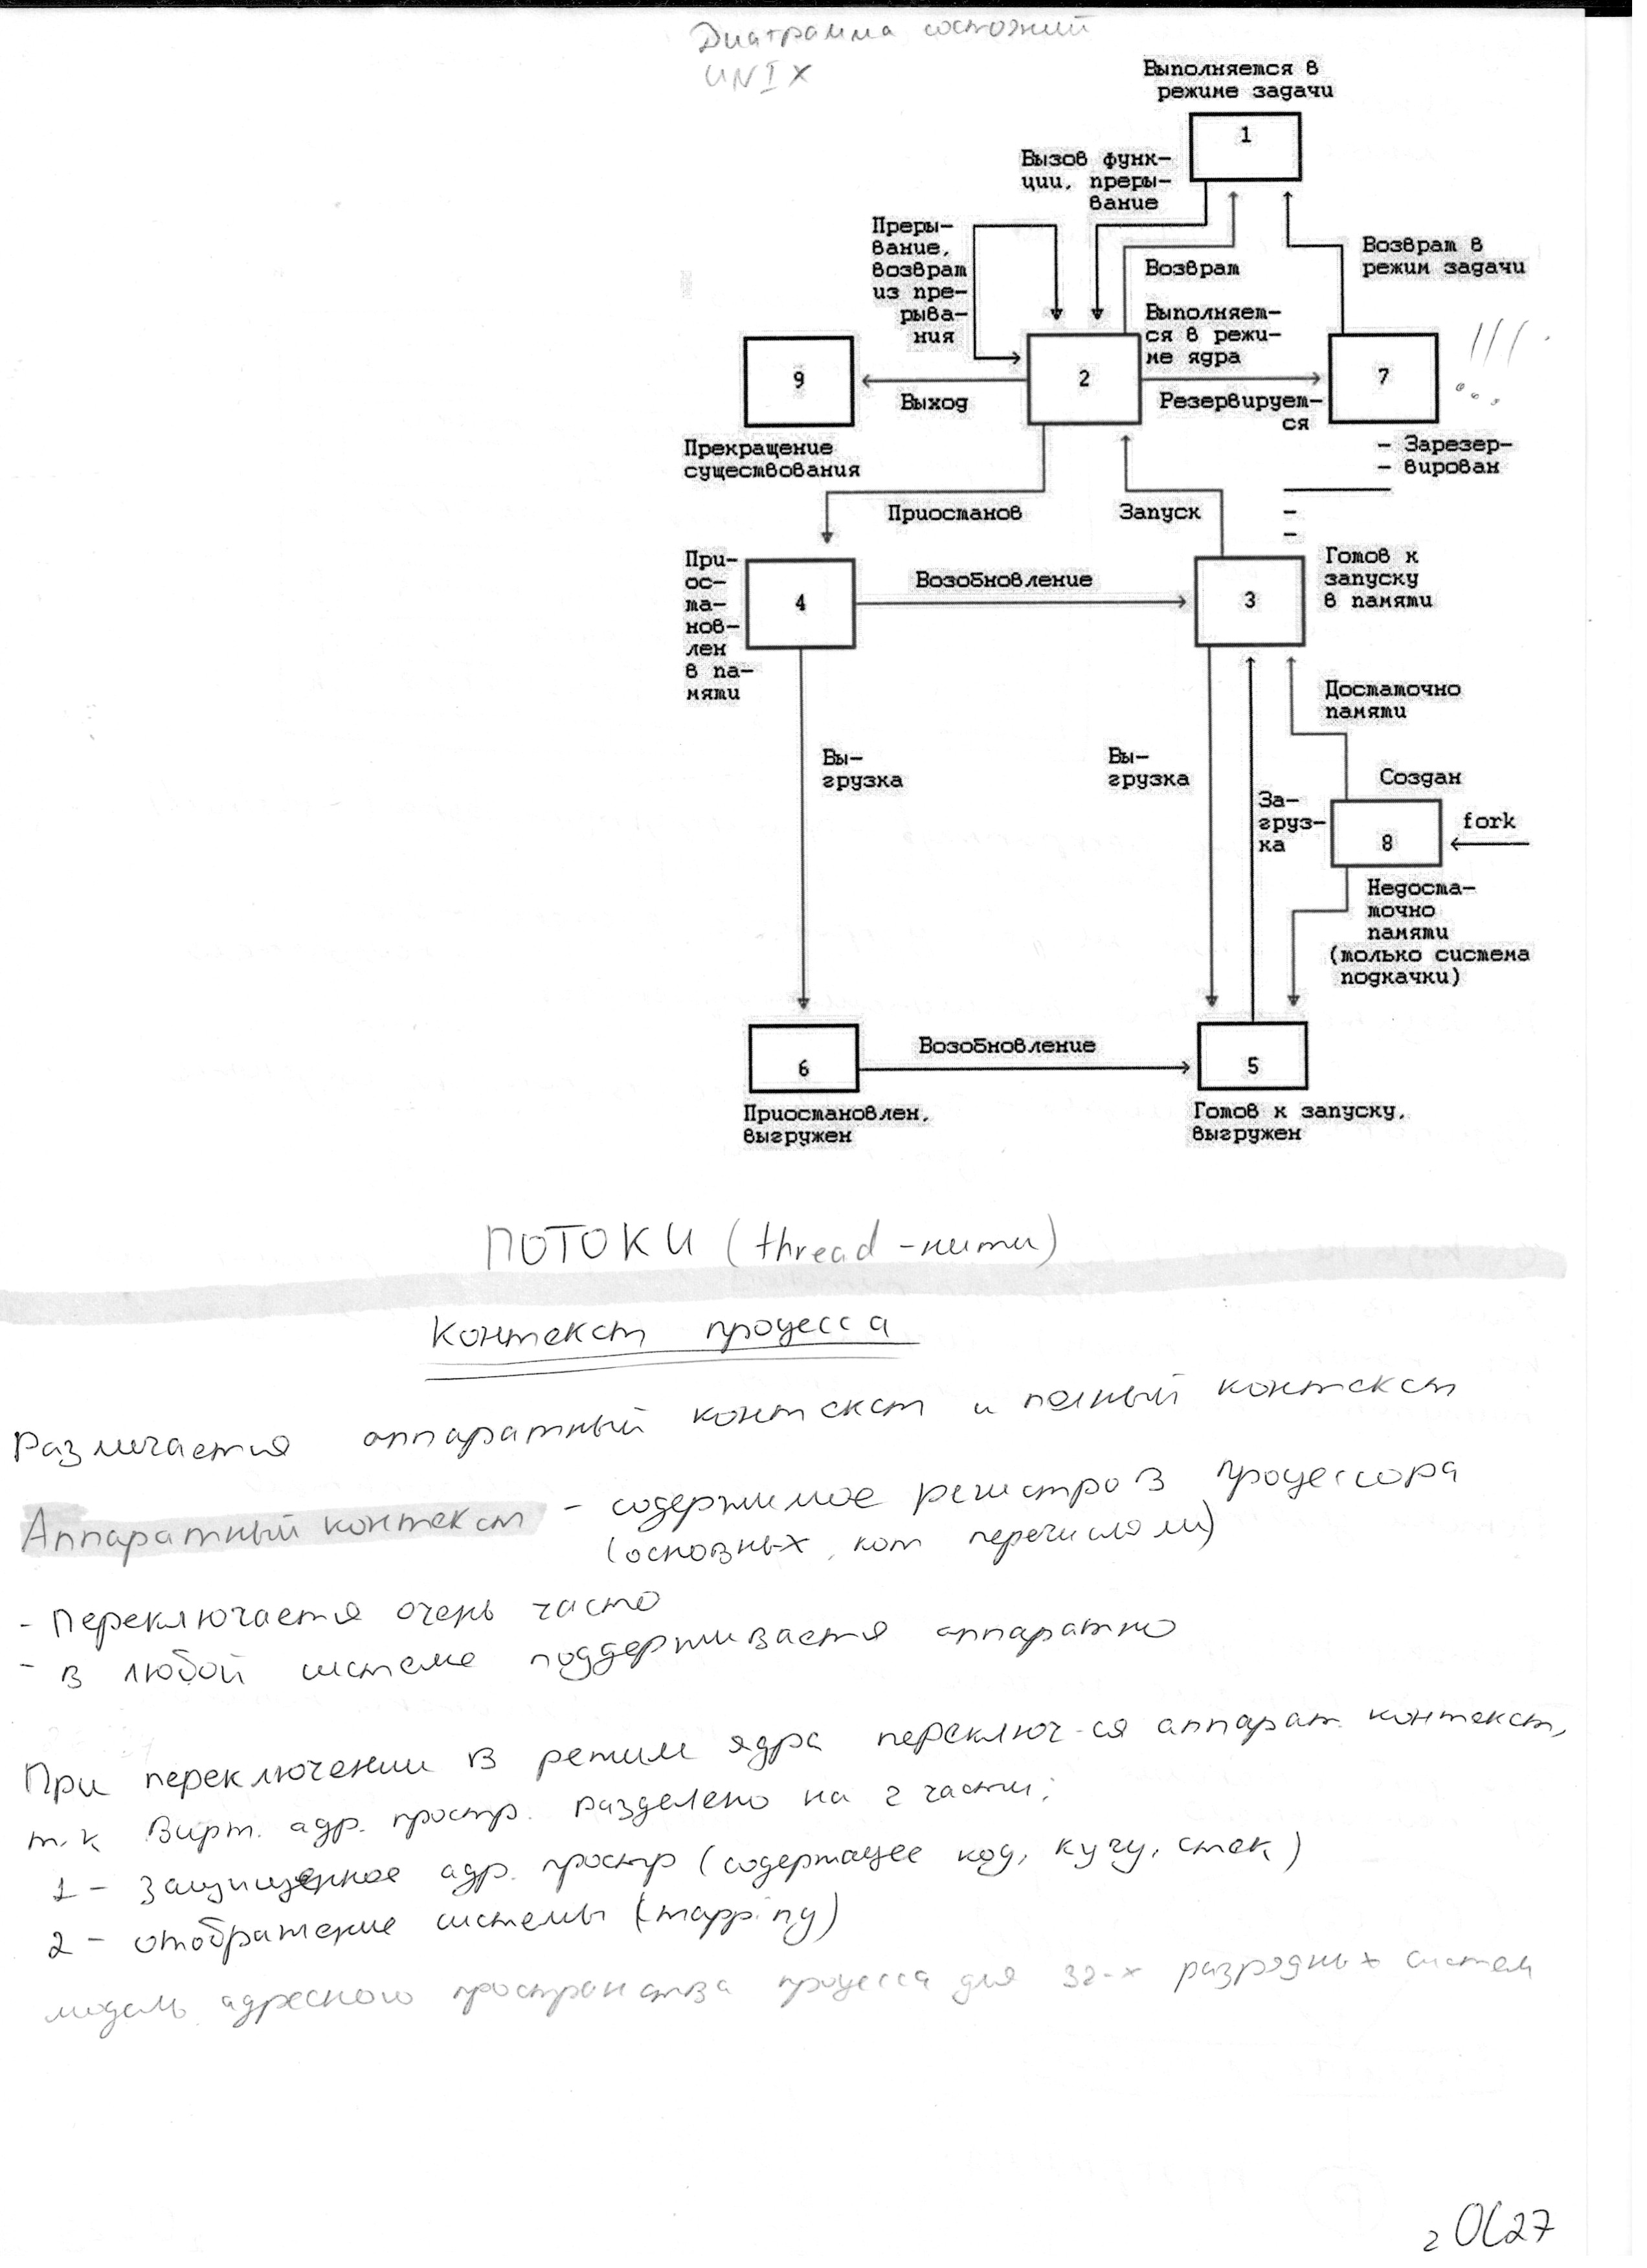 Диаграмма состояний
UNIX
Выполняется в
режиме задачи
1
Вызов функ-
ции, преры-
вание
Преры-
вание,
возврат
из пре-
рыва-
ния
Возврат
Возврат в
режим задачи
Выполняет-
ся в режи-
ме ядра
9
2
7
Выход
Резервирует-
ся
Прекращение
существования
- Зарезер-
- вирован
Приостанов
Запуск
При-
ос-
та-
нов-
лен
в па-
мяти
4
Возобновление
3
Готов к
запуску
в памяти
Достаточно
памяти
Вы-
грузка
Вы-
грузка
За-
груз-
ка
Создан
8
fork
Недоста-
точно
памяти
(только система
подкачки)
6
Возобновление
5
Приостановлен,
выгружен
Готов к запуску,
выгружен
ПОТОКИ (thread - нити)
Контекст процесса
Различается аппаратный контекст и полный контекст
Аппаратный контекст - содержимое регистров процессора
(основных, кот перечисляли)
- Переключается очень часто
- в любой системе поддерживается аппаратно
При переключении в режим ядра переключ-ся аппарат. контекст,
т.к Вирт. адр. простр. разделено на 2 части:
1 - защищенное адр. простр (содержащее код, кучу, стек)
2 - отображение системы (mapping)
модель адресного пространства процесса для 32-х разрядных систем
2 ОС27